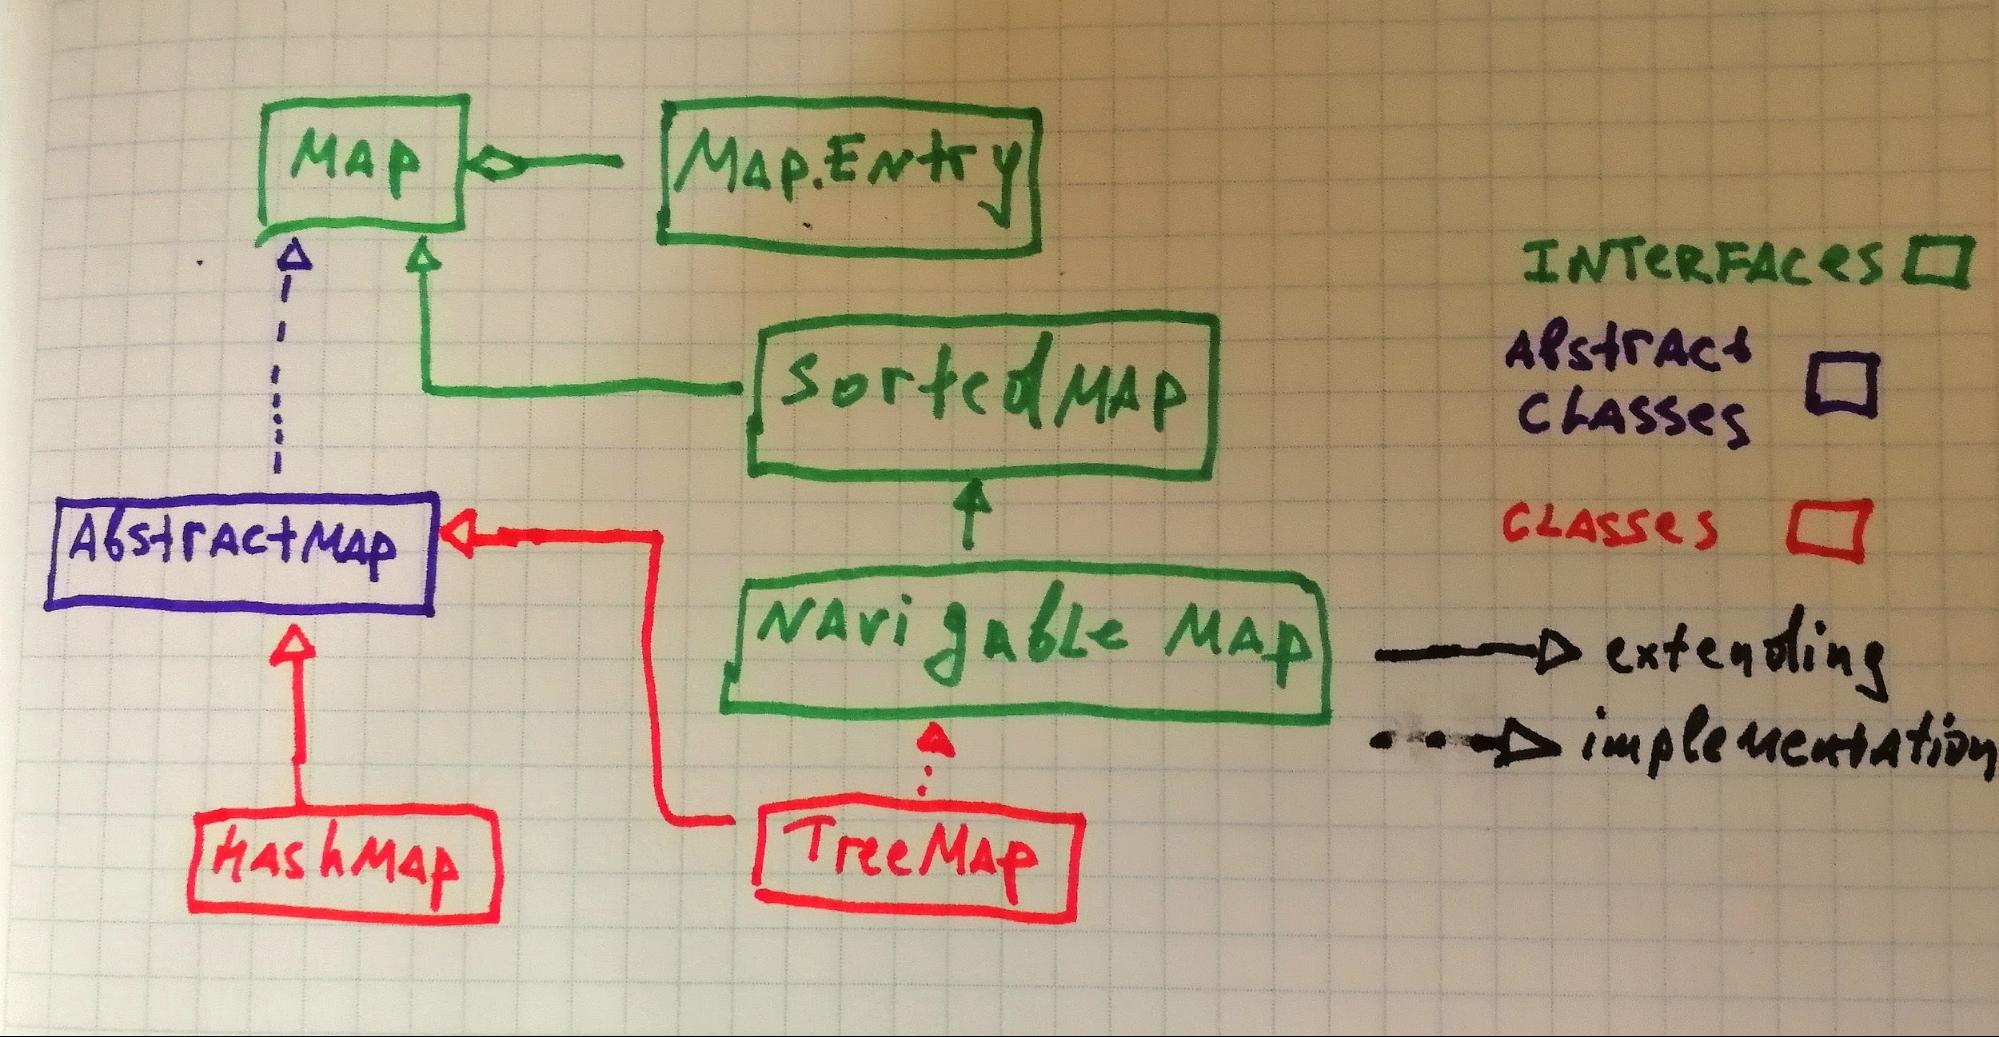 Map
Map.Entry
SortedMap
AbstractMap
Navigable Map
HashMap
TreeMap
INTERFACES
Abstract
Classes
Classes
extending
implementation